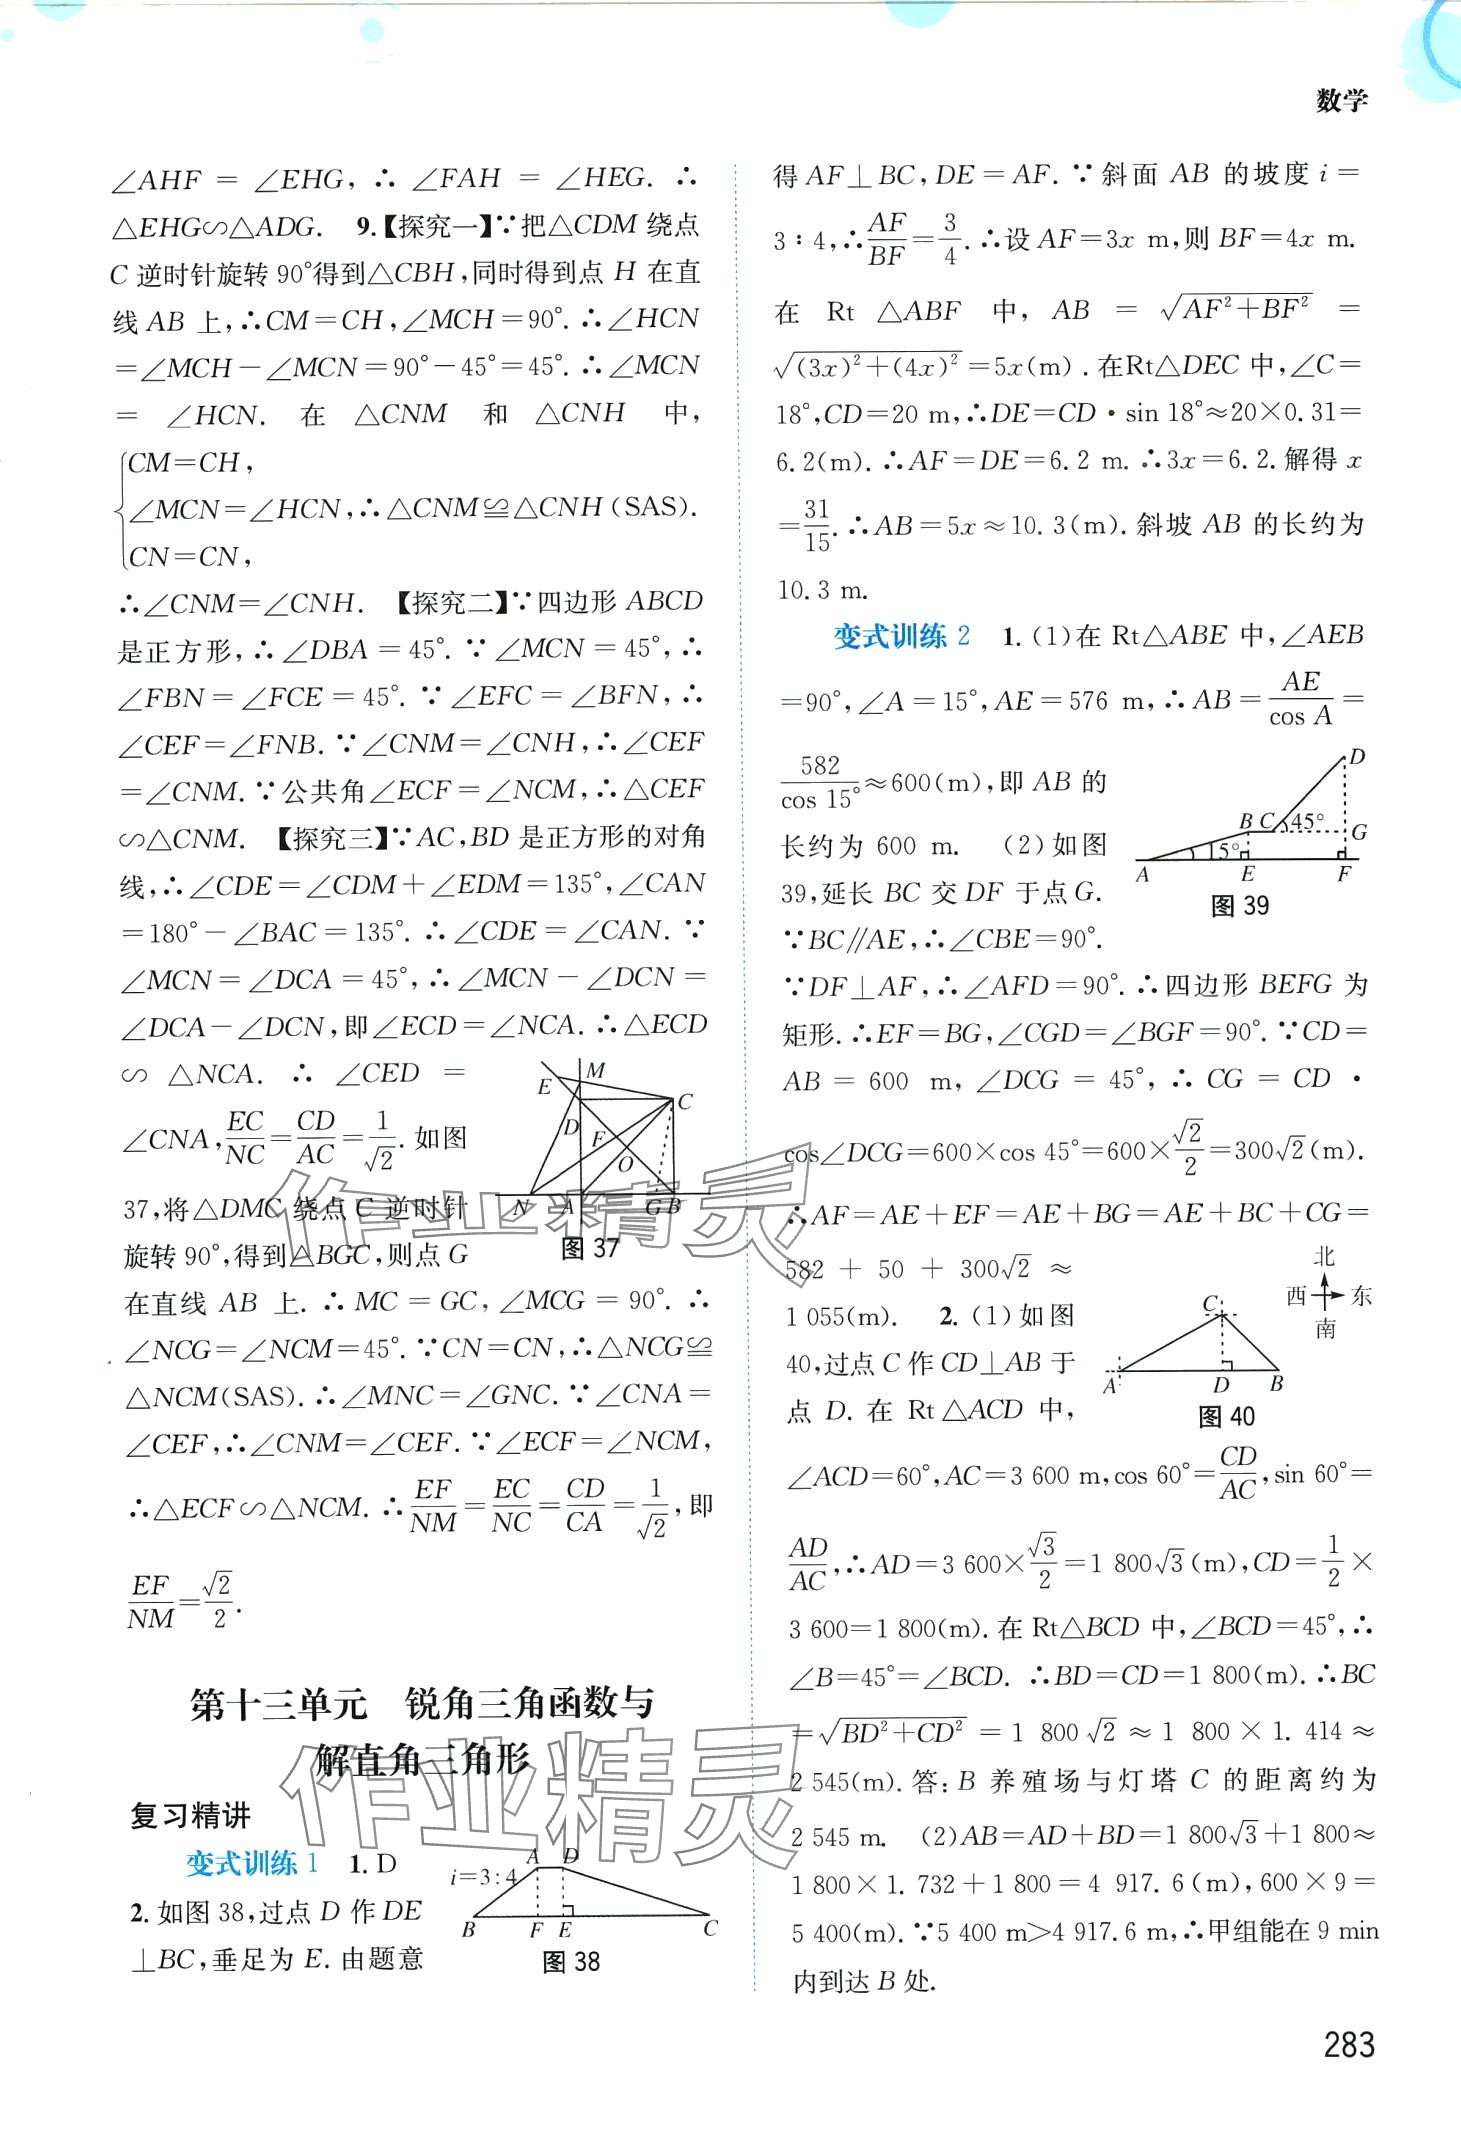 数学
∠AHF = ∠EHG, ∴ ∠FAH = ∠HEG. ∴
△EHG∽△ADG. 9.【探究一】∵把△CDM 绕点
C 逆时针旋转 90°得到△CBH,同时得到点 H 在直
线 AB 上,∴CM=CH,∠MCH=90°. ∴∠HCN
=∠MCH-∠MCN=90°-45°=45°. ∴∠MCN
= ∠HCN. 在 △CNM 和 △CNH 中,
{CM=CH,
∠MCN=∠HCN,∴△CNM≌△CNH(SAS).
CN=CN,
∴∠CNM=∠CNH. 【探究二】∵四边形 ABCD
是正方形,∴∠DBA=45°. ∵∠MCN=45°,∴
∠FBN=∠FCE=45°. ∵∠EFC=∠BFN,∴
∠CEF=∠FNB. ∵∠CNM=∠CNH,∴∠CEF
=∠CNM. ∵公共角∠ECF=∠NCM,∴△CEF
∽△CNM. 【探究三】∵AC,BD 是正方形的对角
线,∴∠CDE=∠CDM+∠EDM=135°,∠CAN
=180°-∠BAC=135°. ∴∠CDE=∠CAN. ∵
∠MCN=∠DCA=45°,∴∠MCN-∠DCN=
∠DCA-∠DCN,即∠ECD=∠NCA. ∴△ECD
∽ △NCA. ∴ ∠CED =
∠CNA, EC/NC=CD/AC=1/√2. 如图
37,将△DMC 绕点 C 逆时针
旋转 90°,得到△BGC,则点 G
M
E
C
D
F
O
N A G B
图 37
在直线 AB 上. ∴MC=GC,∠MCG=90°. ∴
∠NCG=∠NCM=45°. ∵CN=CN,∴△NCG≌
△NCM(SAS). ∴∠MNC=∠GNC. ∵∠CNA=
∠CEF,∴∠CNM=∠CEF. ∵∠ECF=∠NCM,
∴△ECF∽△NCM. ∴EF/NM=EC/NC=CD/CA=1/√2,即
EF/NM=√2/2.
第十三单元 锐角三角函数与
解直角三角形
复习精讲
变式训练 1 1. D
2. 如图 38,过点 D 作 DE
⊥BC,垂足为 E. 由题意
A D
i=3:4
B F E C
图 38
得 AF⊥BC,DE=AF. ∵斜面 AB 的坡度 i=
3∶4,∴AF/BF=3/4. ∴设 AF=3x m,则 BF=4x m.
在 Rt △ABF 中, AB = √(AF²+BF²) =
√((3x)²+(4x)²)=5x(m). 在Rt△DEC 中,∠C=
18°,CD=20 m,∴DE=CD·sin 18°≈20×0.31=
6.2(m). ∴AF=DE=6.2 m. ∴3x=6.2. 解得 x
=31/15. ∴AB=5x≈10.3(m). 斜坡 AB 的长约为
10.3 m.
变式训练 2 1. (1)在 Rt△ABE 中,∠AEB
=90°,∠A=15°,AE=576 m,∴AB=AE/cos A=
582/cos 15°≈600(m),即 AB 的
长约为 600 m. (2)如图
39,延长 BC 交 DF 于点 G.
∵BC∥AE,∴∠CBE=90°.
D
B C 45° G
15°
A E F
图 39
∵DF⊥AF,∴∠AFD=90°. ∴四边形 BEFG 为
矩形. ∴EF=BG,∠CGD=∠BGF=90°. ∵CD=
AB = 600 m, ∠DCG = 45°, ∴ CG = CD ·
cos∠DCG=600×cos 45°=600×√2/2=300√2(m).
∴AF=AE+EF=AE+BG=AE+BC+CG=
582 + 50 + 300√2 ≈
1 055(m). 2. (1)如图
40,过点 C 作 CD⊥AB 于
点 D. 在 Rt△ACD 中,
北
西 东
南
C
A D B
图 40
∠ACD=60°,AC=3 600 m,cos 60°=CD/AC,sin 60°=
AD/AC,∴AD=3 600×√3/2=1 800√3(m),CD=1/2×
3 600=1 800(m). 在 Rt△BCD 中,∠BCD=45°,∴
∠B=45°=∠BCD. ∴BD=CD=1 800(m). ∴BC
=√(BD²+CD²) = 1 800√2 ≈ 1 800 × 1.414 ≈
2 545(m). 答:B 养殖场与灯塔 C 的距离约为
2 545 m. (2)AB=AD+BD=1 800√3+1 800≈
1 800×1.732+1 800=4 917.6(m),600×9=
5 400(m). ∵5 400 m>4 917.6 m,∴甲组能在 9 min
内到达 B 处.
作业精灵
作业精灵
283